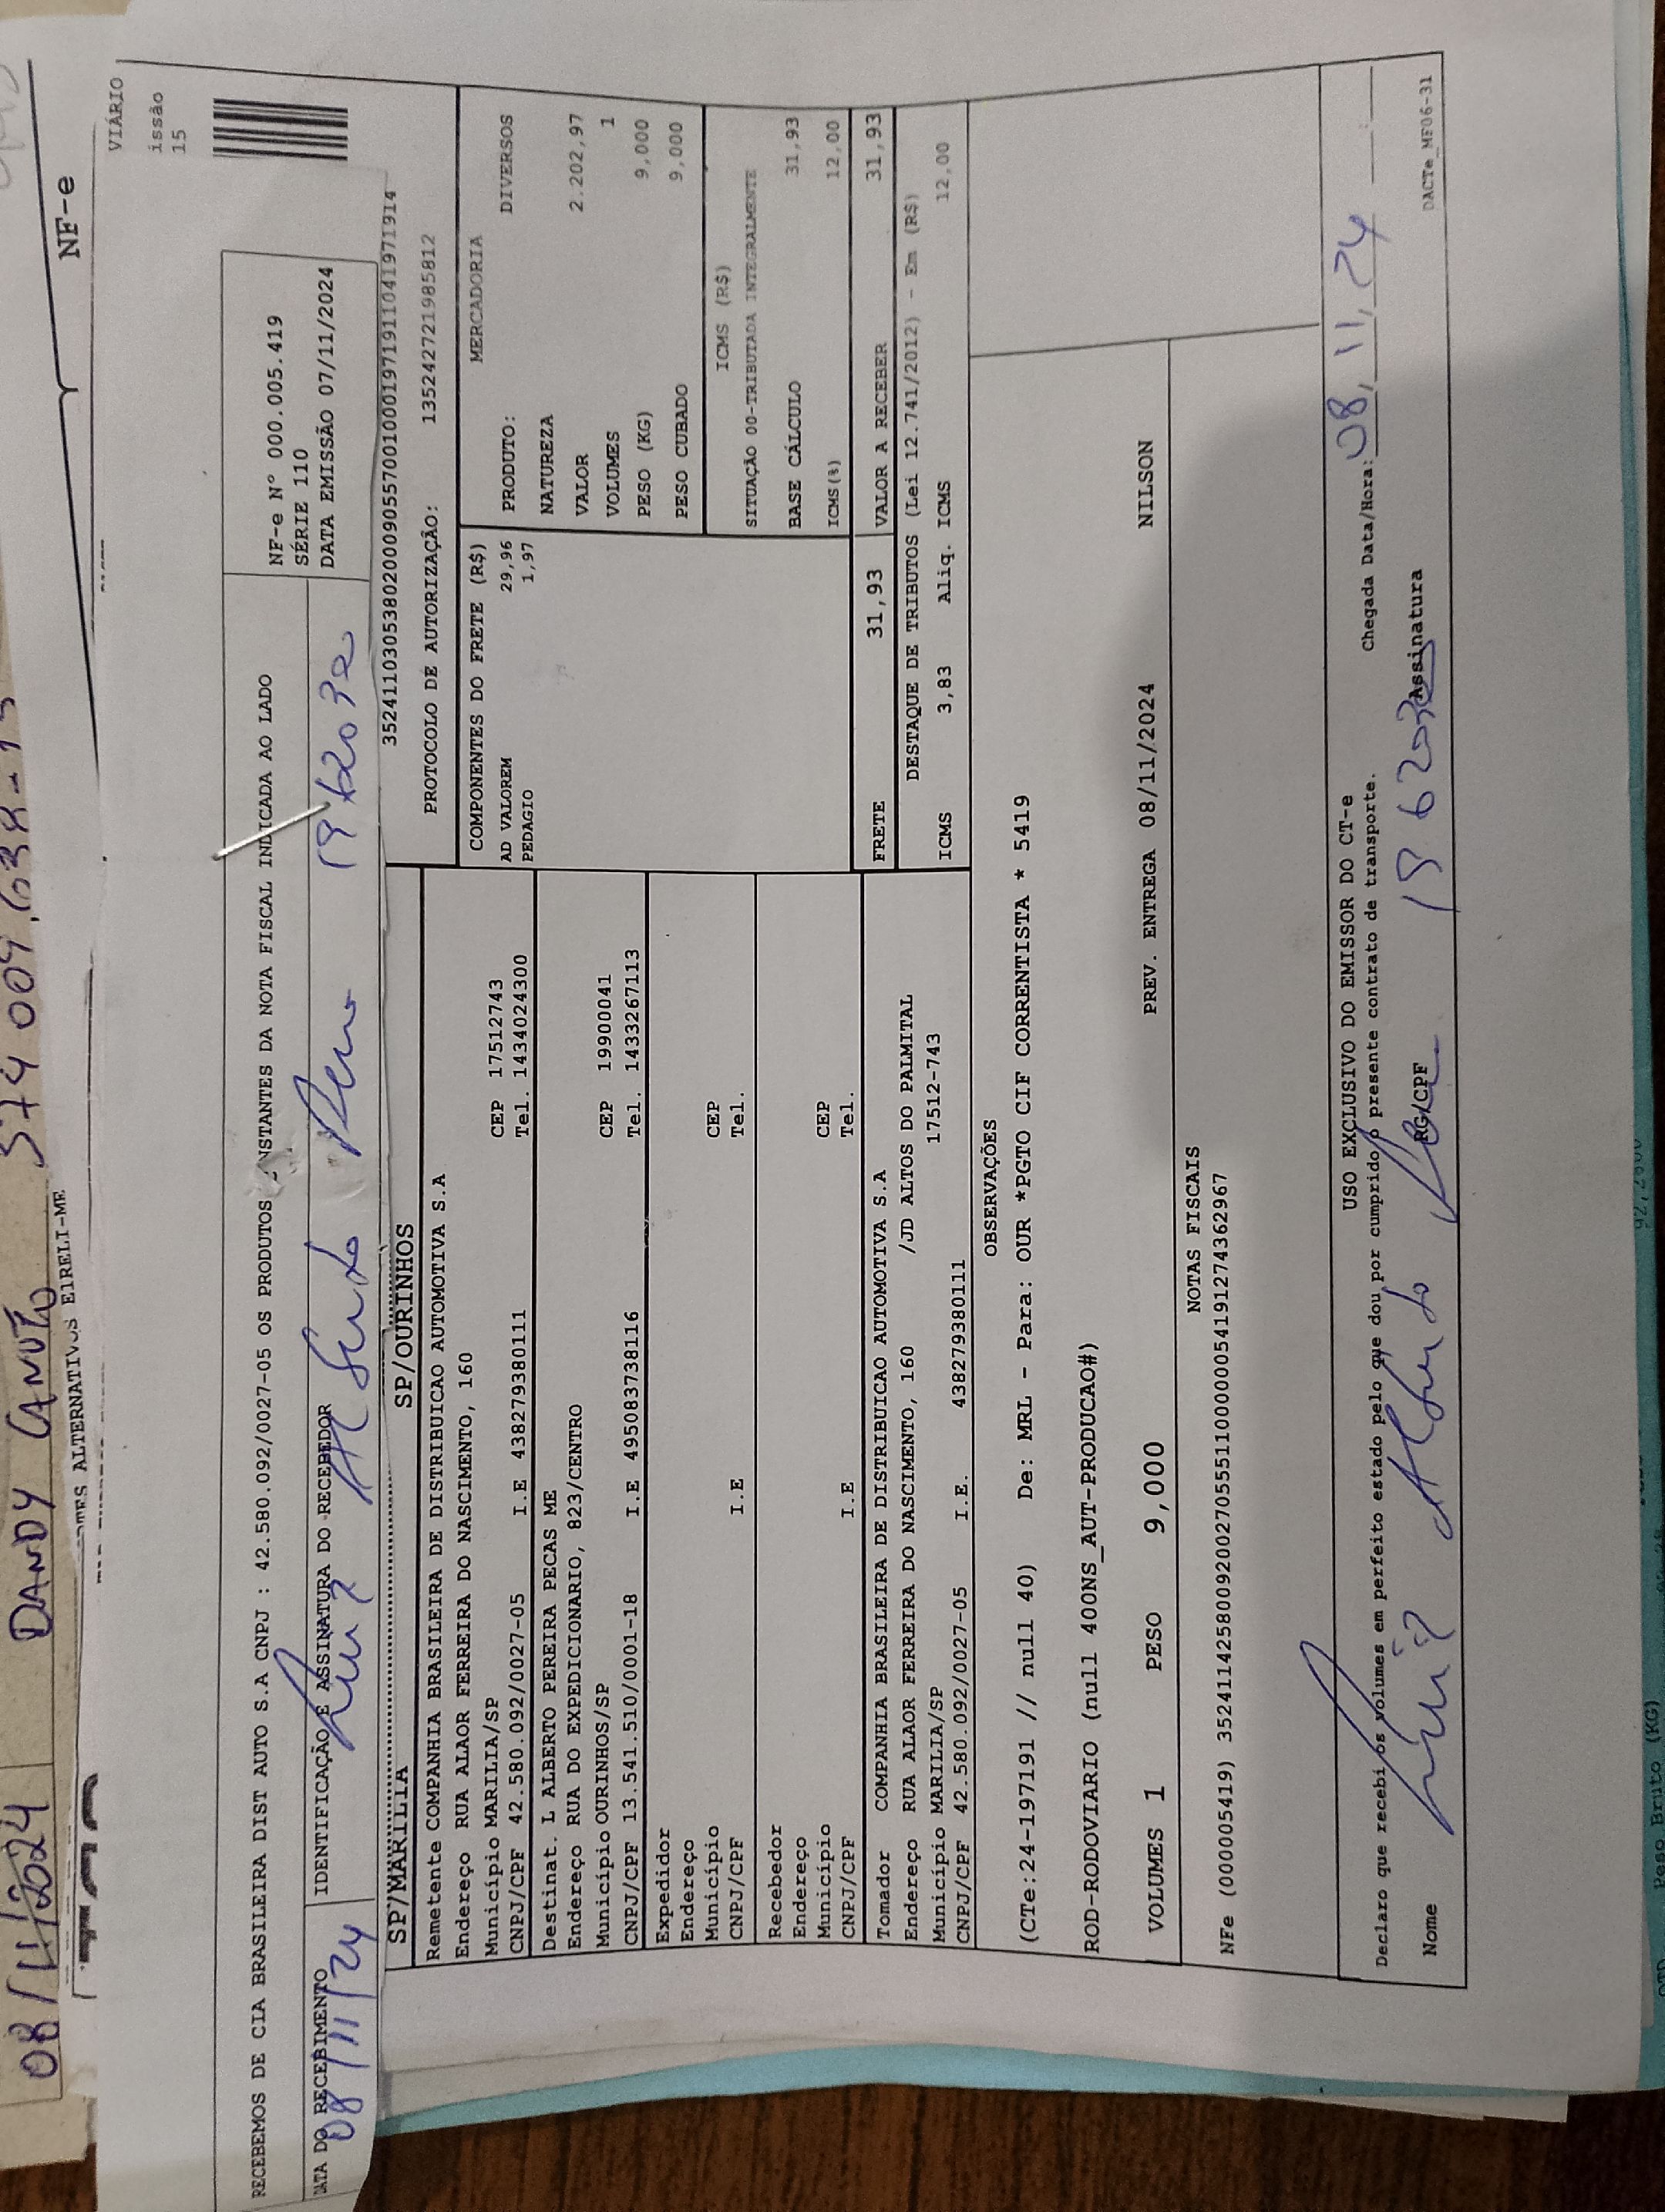 08/11/2024 DANDY CANUTO
NF-e
EIRELI-ME
VIÁRIO
issão
15
RECEBEMOS DE CIA BRASILEIRA DIST AUTO S.A CNPJ : 42.580.092/0027-05 OS PRODUTOS NSTANTES DA NOTA FISCAL INDICADA AO LADO
NF-e Nº 000.005.419
SÉRIE 110
DATA EMISSÃO 07/11/2024
DATA DO RECEBIMENTO IDENTIFICAÇÃO E ASSINATURA DO RECEBEDOR
08/11/24 Luiz
35241103053802000905570010001971911041971914
SP/MARILIA SP/OURINHOS
PROTOCOLO DE AUTORIZAÇÃO: 135242721985812
Remetente COMPANHIA BRASILEIRA DE DISTRIBUICAO AUTOMOTIVA S.A
Endereço RUA ALAOR FERREIRA DO NASCIMENTO, 160
Município MARILIA/SP CEP 17512743
CNPJ/CPF 42.580.092/0027-05 I.E 438279380111 Tel. 1434024300
Destinat. L ALBERTO PEREIRA PECAS ME
Endereço RUA DO EXPEDICIONARIO, 823/CENTRO
Município OURINHOS/SP CEP 19900041
CNPJ/CPF 13.541.510/0001-18 I.E 495083738116 Tel. 1433267113
Expedidor
Endereço
Município CEP
CNPJ/CPF I.E Tel.
Recebedor
Endereço
Município CEP
CNPJ/CPF I.E Tel.
Tomador COMPANHIA BRASILEIRA DE DISTRIBUICAO AUTOMOTIVA S.A
Endereço RUA ALAOR FERREIRA DO NASCIMENTO, 160 /JD ALTOS DO PALMITAL
Município MARILIA/SP 17512-743
CNPJ/CPF 42.580.092/0027-05 I.E. 438279380111
COMPONENTES DO FRETE (R$)
AD VALOREM 29,96
PEDAGIO 1,97
MERCADORIA
PRODUTO: DIVERSOS
NATUREZA
VALOR 2.202,97
VOLUMES 1
PESO (KG) 9,000
PESO CUBADO 9,000
ICMS (R$)
SITUAÇÃO 00-TRIBUTADA INTEGRALMENTE
BASE CÁLCULO 31,93
ICMS(%) 12,00
FRETE 31,93 VALOR A RECEBER 31,93
DESTAQUE DE TRIBUTOS (Lei 12.741/2012) - Em (R$)
ICMS 3,83 Aliq. ICMS 12,00
OBSERVAÇÕES
(CTe:24-197191 // null 40) De: MRL - Para: OUR *PGTO CIF CORRENTISTA * 5419
ROD-RODOVIARIO (null 400NS_AUT-PRODUCAO#)
VOLUMES 1 PESO 9,000 PREV. ENTREGA 08/11/2024 NILSON
NOTAS FISCAIS
NFe (000005419) 35241142580092002705551100000054191274362967
USO EXCLUSIVO DO EMISSOR DO CT-e
Declaro que recebi os volumes em perfeito estado pelo que dou por cumprido o presente contrato de transporte.
Chegada Data/Hora: 08/11/24
Nome Luiz RG/CPF Assinatura
DACTe_MF06-31
Peso Bruto (KG)